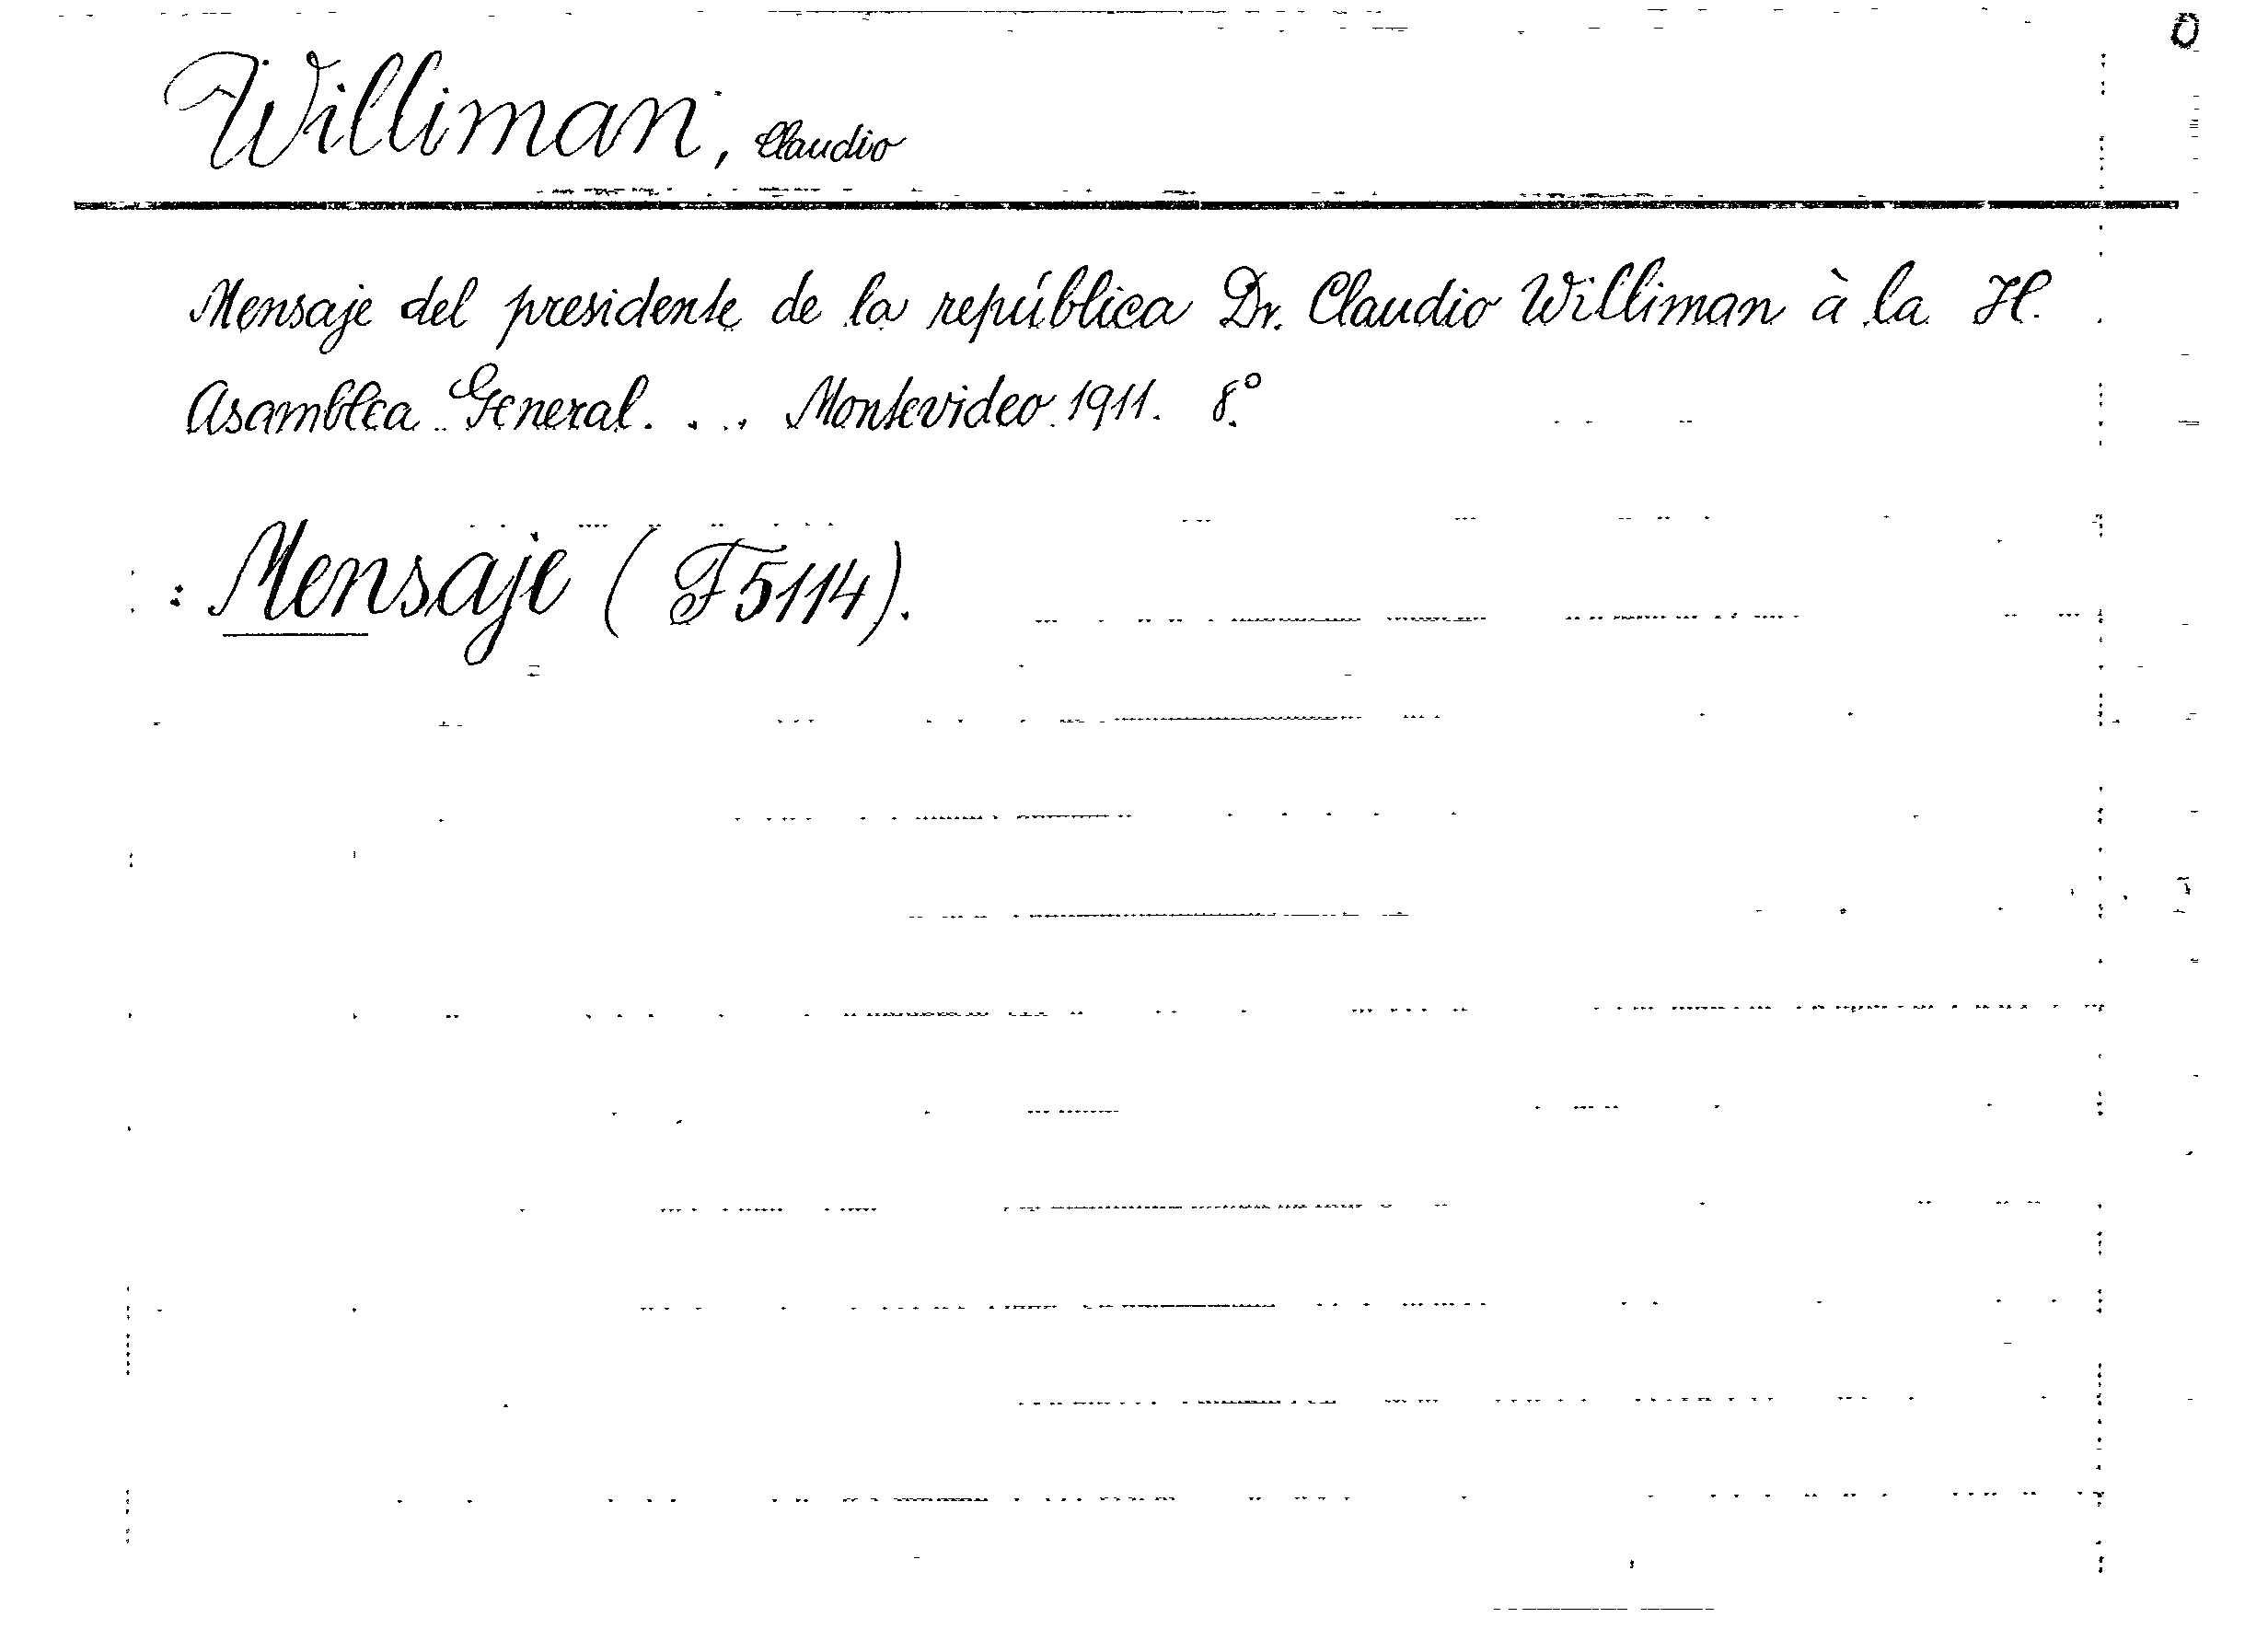 Williman, Claudio
Mensaje del presidente de la república Dr. Claudio Williman à la H.
Asamblea General. ... Montevideo 1911. 8.º
: Mensaje (F5114).